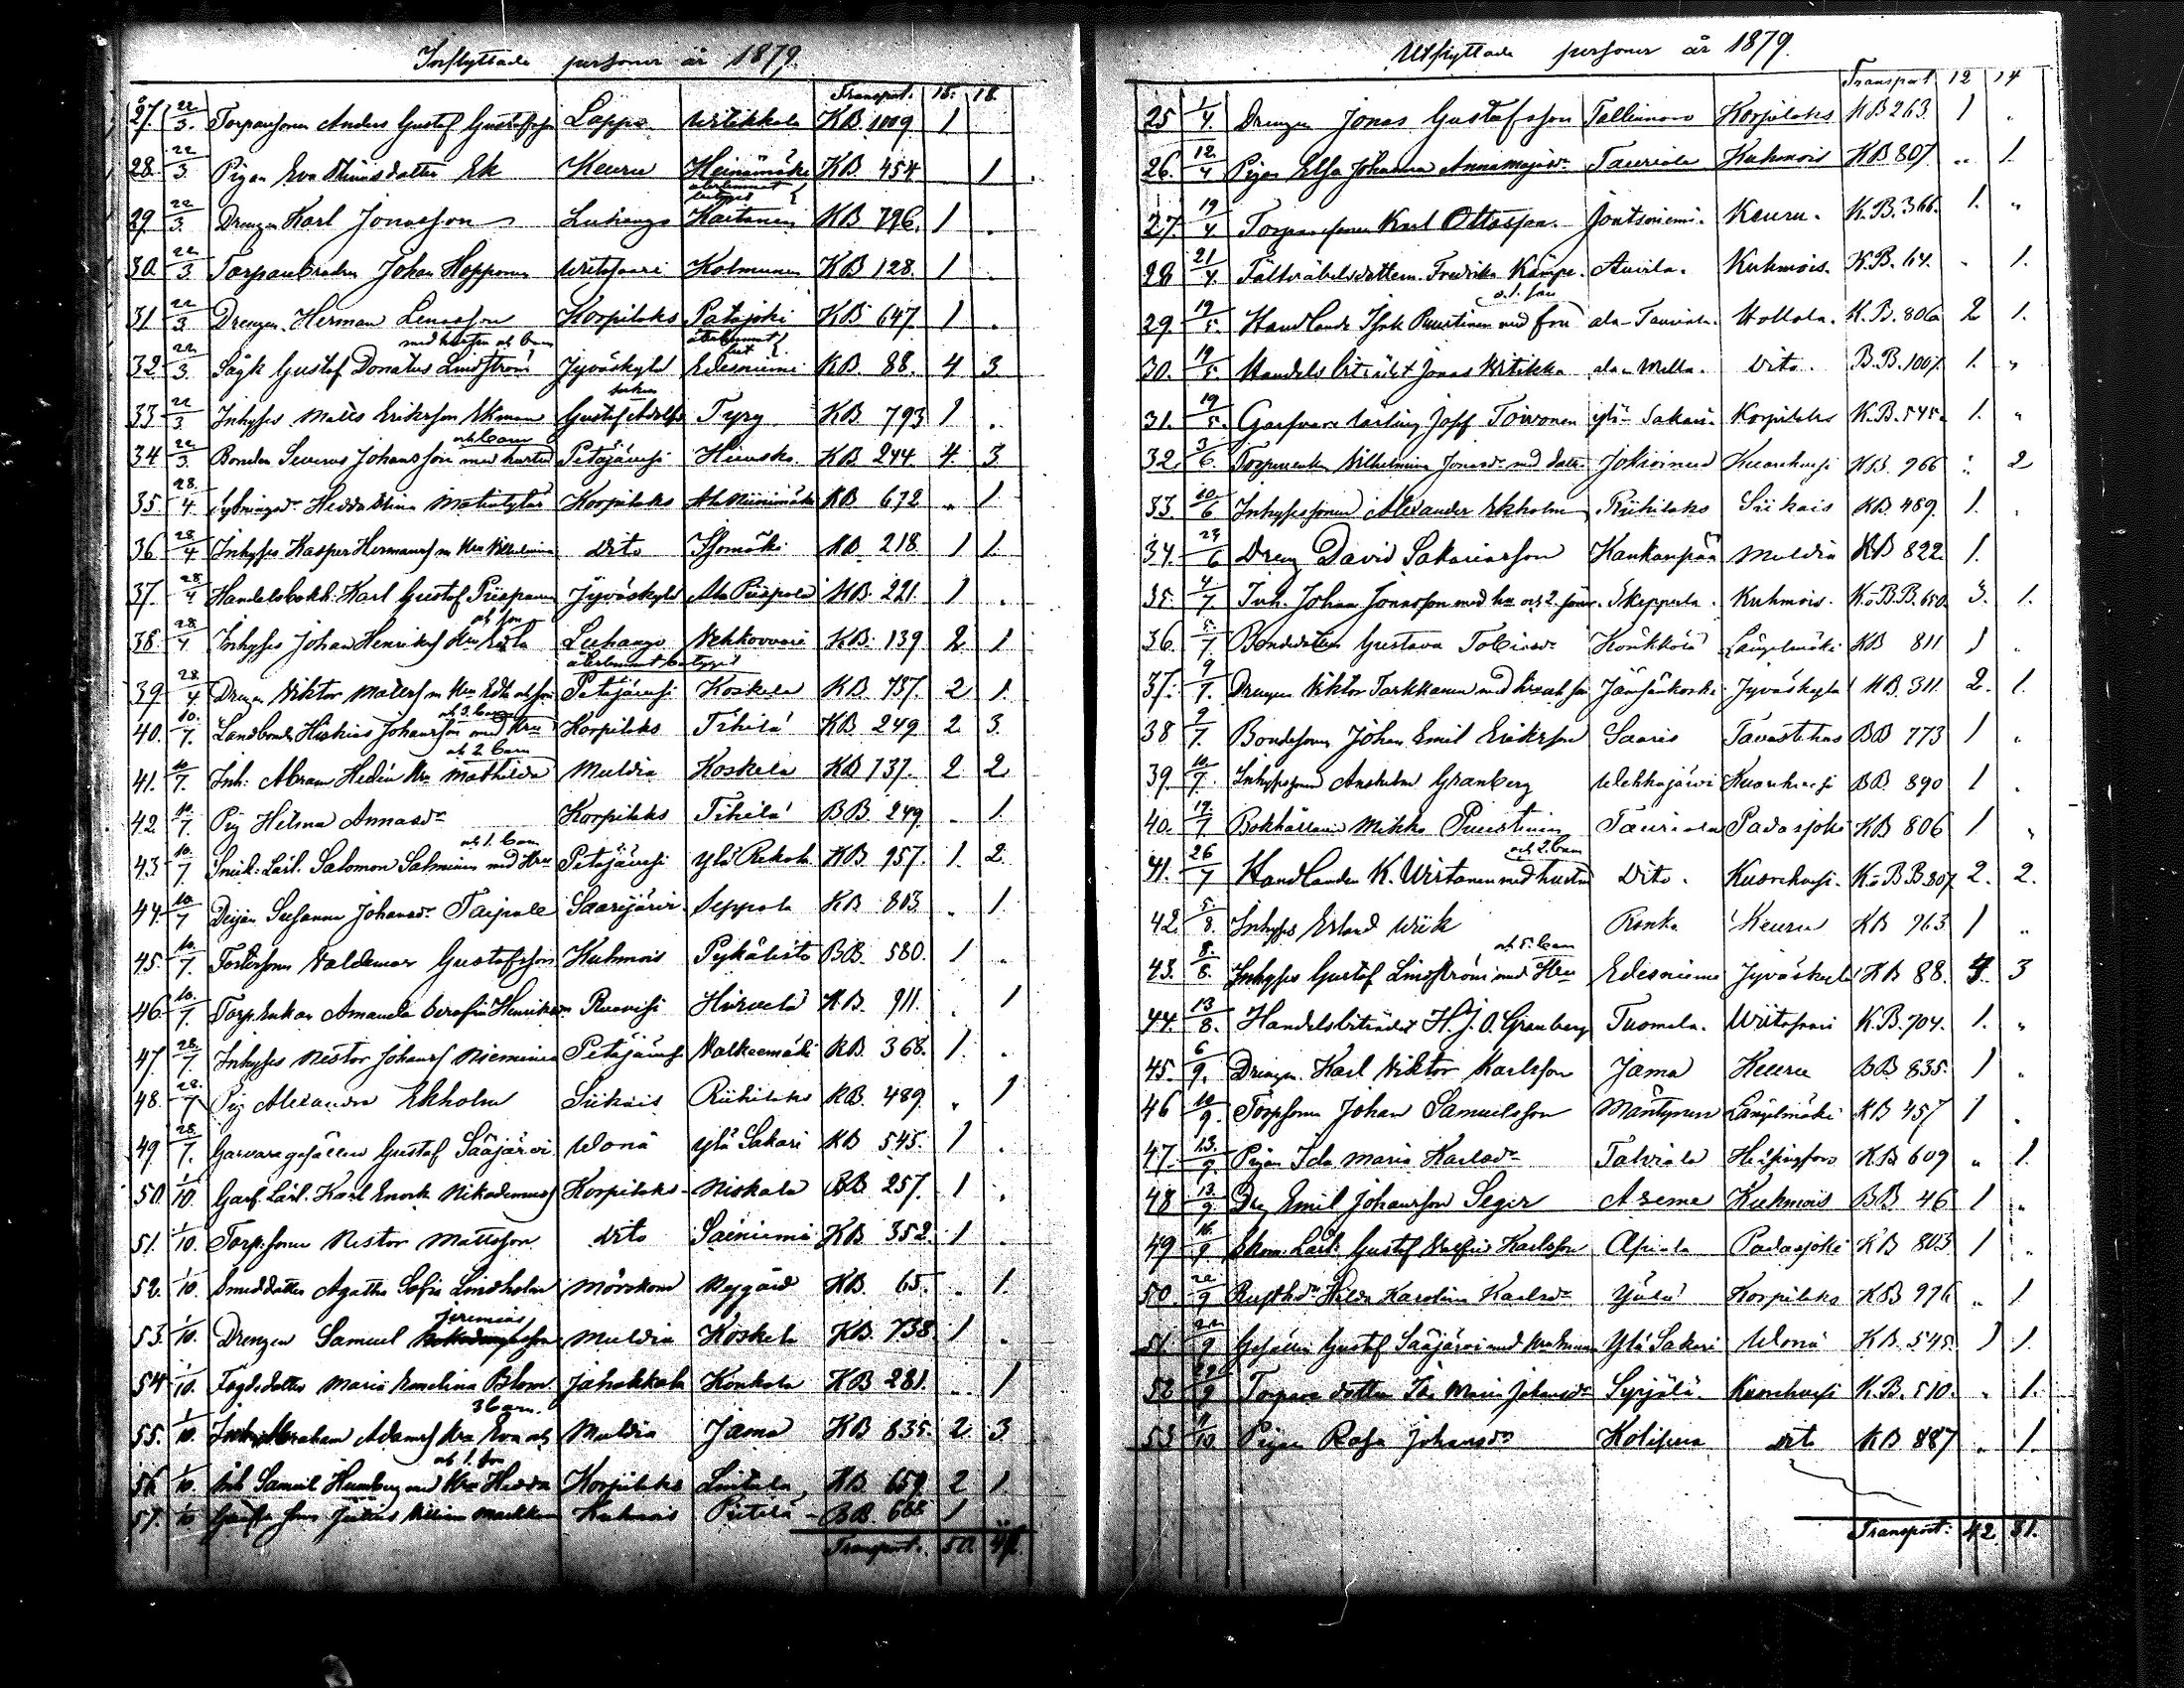 Inflyttade personer år 1879.
Transport. 15. 18.
27. 22/3. Torparesonen Anders Gustaf Gustafsson Lappo Uitikkala KB. 1009 1
28. 22/3. Pigan Eva Stinasdotter Ek Keuru Heinämäki KB. 454 1
29. 22/3. Drengen Karl Jonasson Luhango Kaitanen KB 796. 1
30. 22/3. Torparebrodren Johan Hopponen Witasaari Kolmunen KB 128. 1
31. 22/3. Drengen Herman Lenasson Korpilaks Patajoki KB 647. 1
med hustru och barn
32. 22/3. Sågk Gustaf Donatus Lindström Jyväskylä Edesniemi KB. 88. 4 3
33. 22/3. Inhyses Matts Eriksson Ekman Gustaf Adolfs Tyry KB 793 1
och barn
34. 22/3. Bonden Severus Johansson med hustru Petäjävesi KB 244. 4. 3.
35. 28/4. Hedda Stina Matintytär Korpilaks Ala Niinimäki KB 672 „ 1
36. 28/4 Inhyses Kasper Hermanss m Hu Vilhelmina Dito Isomäki KB. 218. 1 1.
37. 28/4 Handelsbokh. Karl Gustaf Piispanen Jyväskylä Ala Piispala KB. 221. 1
och son
38. 28/4 Inhyses Johan Henrikss Hu Edla Luhango Vehkovuori KB. 139 2. 1
återlemnat betyget
39. 28/4 Drengen Viktor Mattss m Hu Edla och son Petäjävesi Koskela KB. 737. 2 1.
och 3 barn
40. 10/7. Landbonden Hiskias Johansson med Hu Korpilaks Tihilä KB 249 2. 3.
och 2 barn
41. 10/7. Inh: Abram Hedén Hu Mathilda Muldia Koskela KB 737. 2 2
42. 10/7. Pig Hilma Annasdr Korpilaks Tihilä BB. 249. „ 1.
och 1. barn
43. 10/7. Snick: Lärl. Salomon Salminen med Hu Petäjävesi Ylä Rekola KB 957. 1. 2.
44. 10/7 Pigan Susanna Johansdr Taipale Saarijärvi Seppola KB 803. 1.
45. 10/7. Valdemar Gustafsson Kuhmois Pykälistö BB. 580. 1
46. 10/7. Torp. Enkan Amanda Serafia Henriksdr Ruovesi Hirvelä KB. 911. 1
47. 28/7. Inhyses Nestor Johanss Nieminen Petäjävesi Valkeemäki KB. 368. 1.
48. 28/7 Pig Alexandra Ekholm Siikais Riihilaks KB. 489. „ 1
49. 28/7. Garvaregesällen Gustaf Sääjärvi Ylä Sakari KB 545. 1
50. 1/10. Garf. Lärl. Karl Enock Nikodemuss Korpilaks Niskala BB. 257. 1
51. 1/10. Torp. sonen Nestor Mattsson Dito Sainiemi KB 352. 1
52. 1/10. Smeddotter Agatha Sofia Lindholm Mörskom Nygård KB. 65. „ 1.
Jeremias
53. 1/10. Drengen Samuel Muldia Koskela KB. 738. 1
54. 1/10. Fogdedotter Maria Emelina Blom Jahakkala Konkola KB 281. „ 1
3 barn.
55. 1/10. Inh. Abraham Adamss Hu Eva och Muldia Jama KB 835. 2 3.
och 1. son
56. 1/10. Samuel Humberg med Hu Hedda Korpilaks KB 659. 2 1
57. 1/10. Kuhmois Piitelä BB. 688 1
Transport. 50.
Utflyttade personer år 1879.
Transport 12 14
25 1/4. Drengen Jonas Gustafsson Korpilaks KB 263. 1 „
26. 12/4 Pigan Elsa Johanna Annamajasdr Tauriala Kuhmois KB 807 „ 1.
27. 19/4 Torparesonen Karl Ottosson. Joutsniemi. Keuru. K.B. 366. 1. „
28 21/4. Fältväbelsdottern Fredrika Kämpe. Auvila. Kuhmois. K.B. 64. „ 1.
o. 1. son
29. 19/5. Handlande Isak Puustinen med fru ala-Tauriala. Hollola. K.B. 806 2 1.
30. 19/5. Handelsbiträdet Jonas Uitikka ala-Mella. Dito. B.B. 1001. 1. „
31. 19/5. Garfvare lärling Josef Toivonen yli-Sakari. Korpilaks K.B. 545. 1. „
32. 3/6. Torpareenkan Vilhelmina Jonasdr med dotter Jokioinen Kuorehvesi KB. 966 „ 2
33. 10/6 Inhysessonen Alexander Ekholm Riihilaks Siikais KB. 489. 1. „
34. 23/6 Dreng David Sakariasson Kankanpää Muldia KB 822. 1.
35. 4/7. Inh. Johan Jonasson med hu och 2. söner. Skepperla. Kuhmois. K.o B.B. 650. 3. 1.
36. 5/7 Bondedottern Gustava Tobiasdr Längelmäki KB 811 1 „
37. 9/7. Drengen Viktor Tarkkanen med hu och son Jämsänkoski Jyväskylä KB. 311. 2. 1.
38 9/7. Bondesonen Johan Emil Eriksson Saaris Tavastehus BB 773 1 „
39. 10/7. Inhysessonen Anshelm Granberg Wehkajärvi Kuorehvesi BB. 890 1 „
40. 17/7 Bokhållaren Mikko Puustinen Tauriala Padasjoki KB 806 1 „
och 2. barn
41. 26/7 Handlanden K. Wirtanen med hustru Dito. Kuorehvesi. K.o B.B. 807. 2. 2.
42. 5/8. Inhyses Erland Wiik Ronka Keuru KB 963 1 „
och 5. barn
43. 8/8. Inhyses Gustaf Lindström med Hu Edesniemi Jyväskylä KB 88. 4. 3
44. 13/8. Handelsbiträdet H. J. O. Granberg Tuomela. Wiitasaari K.B. 704. 1. „
45. 6/9. Drengen Karl Viktor Karlsson Jama Keuru BB. 835. 1 „
46 10/9. Torpsonen Johan Samuelsson Mäntynen Längelmäki KB 457 1 „
47. 13/9. Pigan Ida Maria Karlsdr Talviala Helsingfors KB 609 „ 1.
48 13/9. Drg Emil Johansson Seger Asema Kuhmois BB 46 1 „
49 16/9. Skom. Lärl. Gustaf Karlsson Padasjoki KB 803 1 „
50. 20/9 Rusthdr Hilda Karolina Karlsdr Korpilaks KB 976 „ 1
51. 22/9 Gesällen Gustaf Sääjärvi med Ylä Sakari KB. 545. 1 1.
52 29/9 Torpare dottern Ida Maria Johansdr Syrjälä. Kuorehvesi K.B. 510. „ 1.
53 11/10. Pigan Rosa Johansdr Kolipuu dito KB 887 „ 1.
Transport: 42. 31.